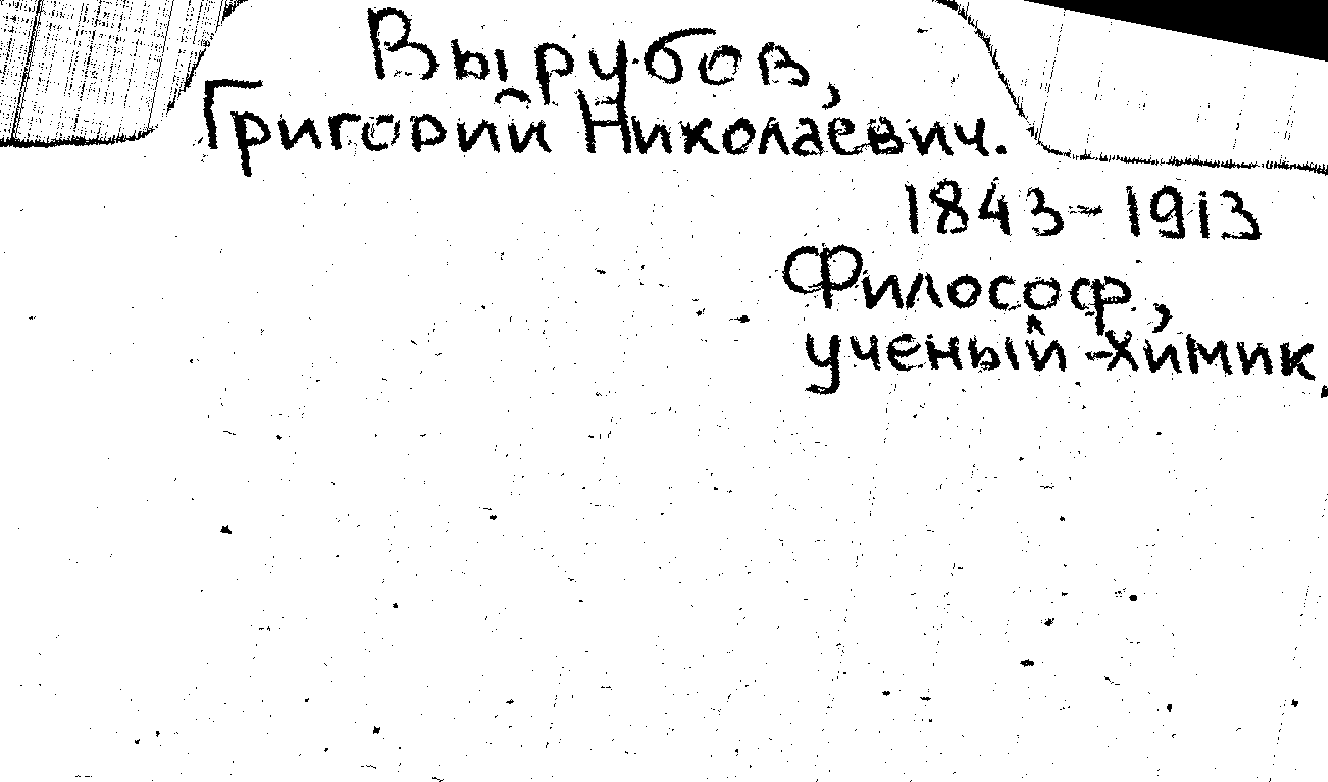 Вырубов,
Григорий Николаевич.
1843-1913
Философ,
ученый-химик.